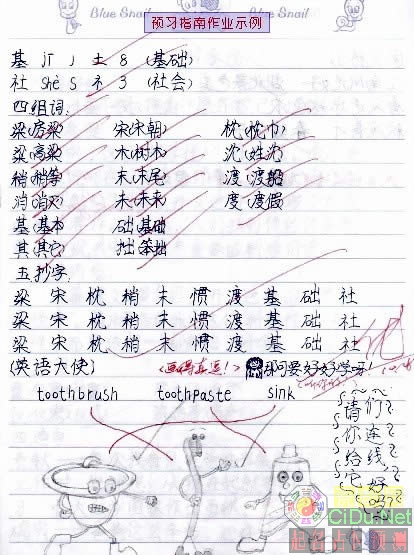 Blue Snail
Blue Snail
预习指南作业示例
基 jī j 土 8 (基础)
社 shè s 礻 3 (社会)
四组词:
梁(房梁) 宋(宋朝) 枕(枕巾)
粱(高粱) 木(树木) 沈(姓沈)
稍(稍等) 末(末尾) 渡(渡船)
消(消灭) 未(未来) 度(度假)
基(基本) 础(基础)
其(其它) 拙(笨拙)
五.抄字.
梁 宋 枕 稍 末 惯 渡 基 础 社
梁 宋 枕 稍 末 惯 渡 基 础 社
梁 宋 枕 稍 末 惯 渡 基 础 社
(英语大使) (画得真逗!) 那同要好好学呀!
toothbrush toothpaste sink
请们
你连
给线,
它好
吗?
CiDu.Net
起名占卜预测